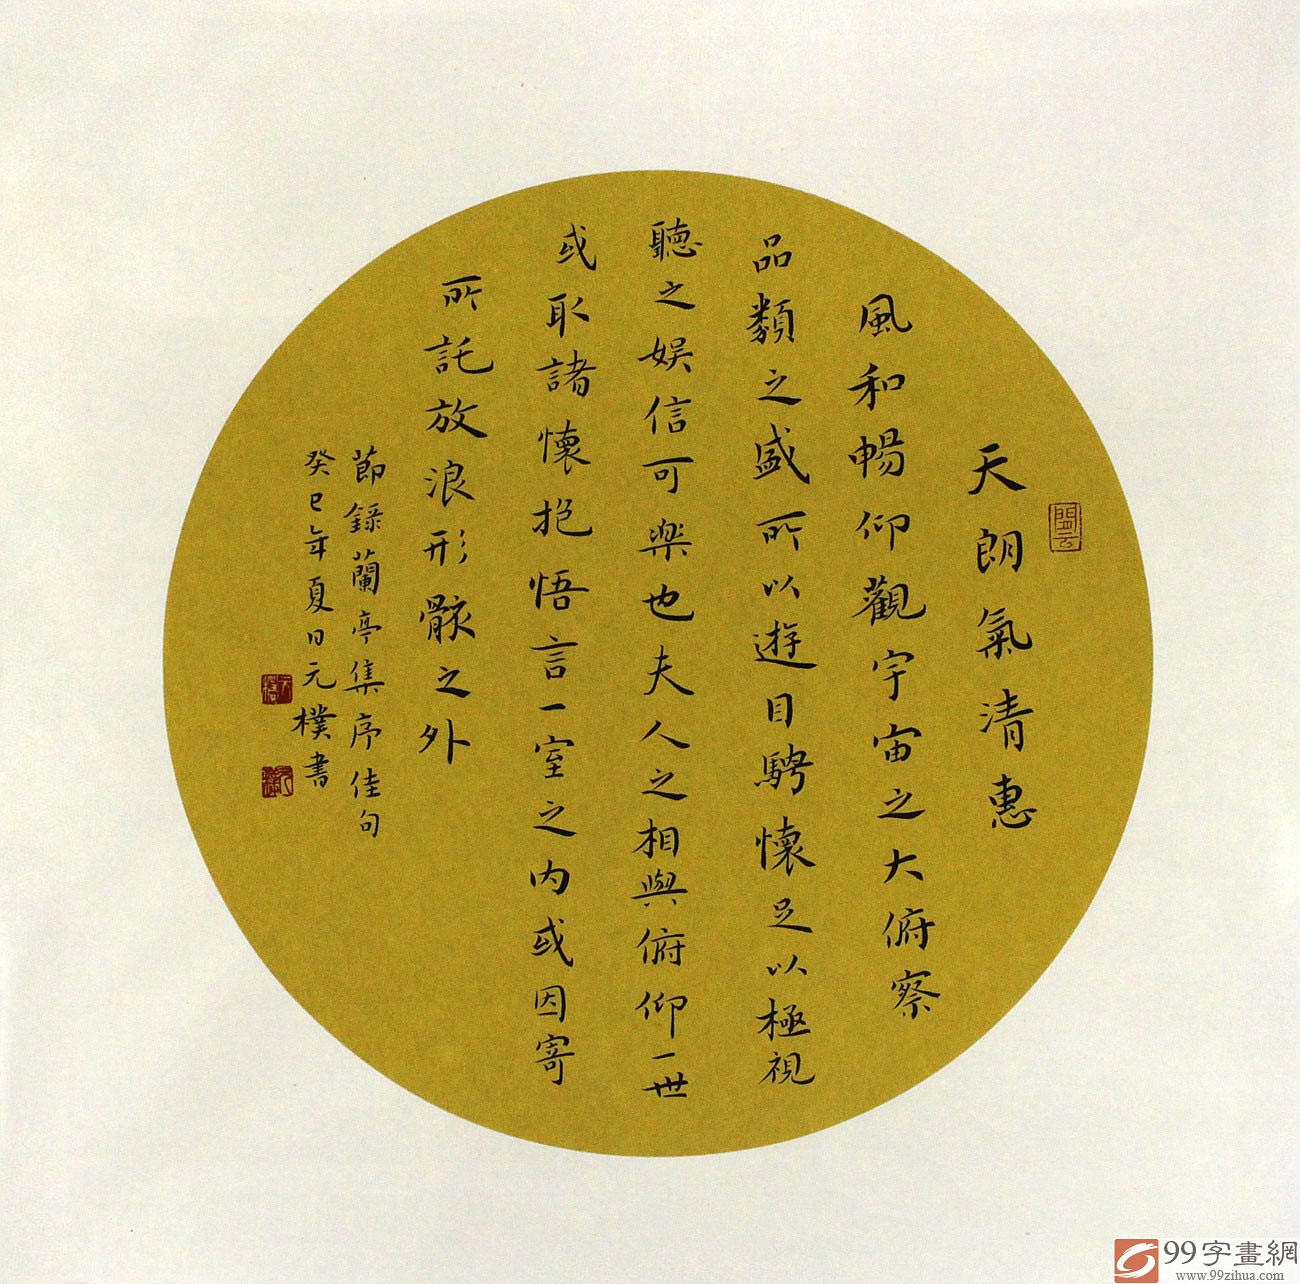 天朗氣清惠
風和暢仰觀宇宙之大俯察
品類之盛所以遊目騁懷足以極視
聽之娛信可樂也夫人之相與俯仰一世
或取諸懷抱悟言一室之內或因寄
所託放浪形骸之外
節錄蘭亭集序佳句
癸巳年夏日元樸書
99字畫網
www.99zihua.com